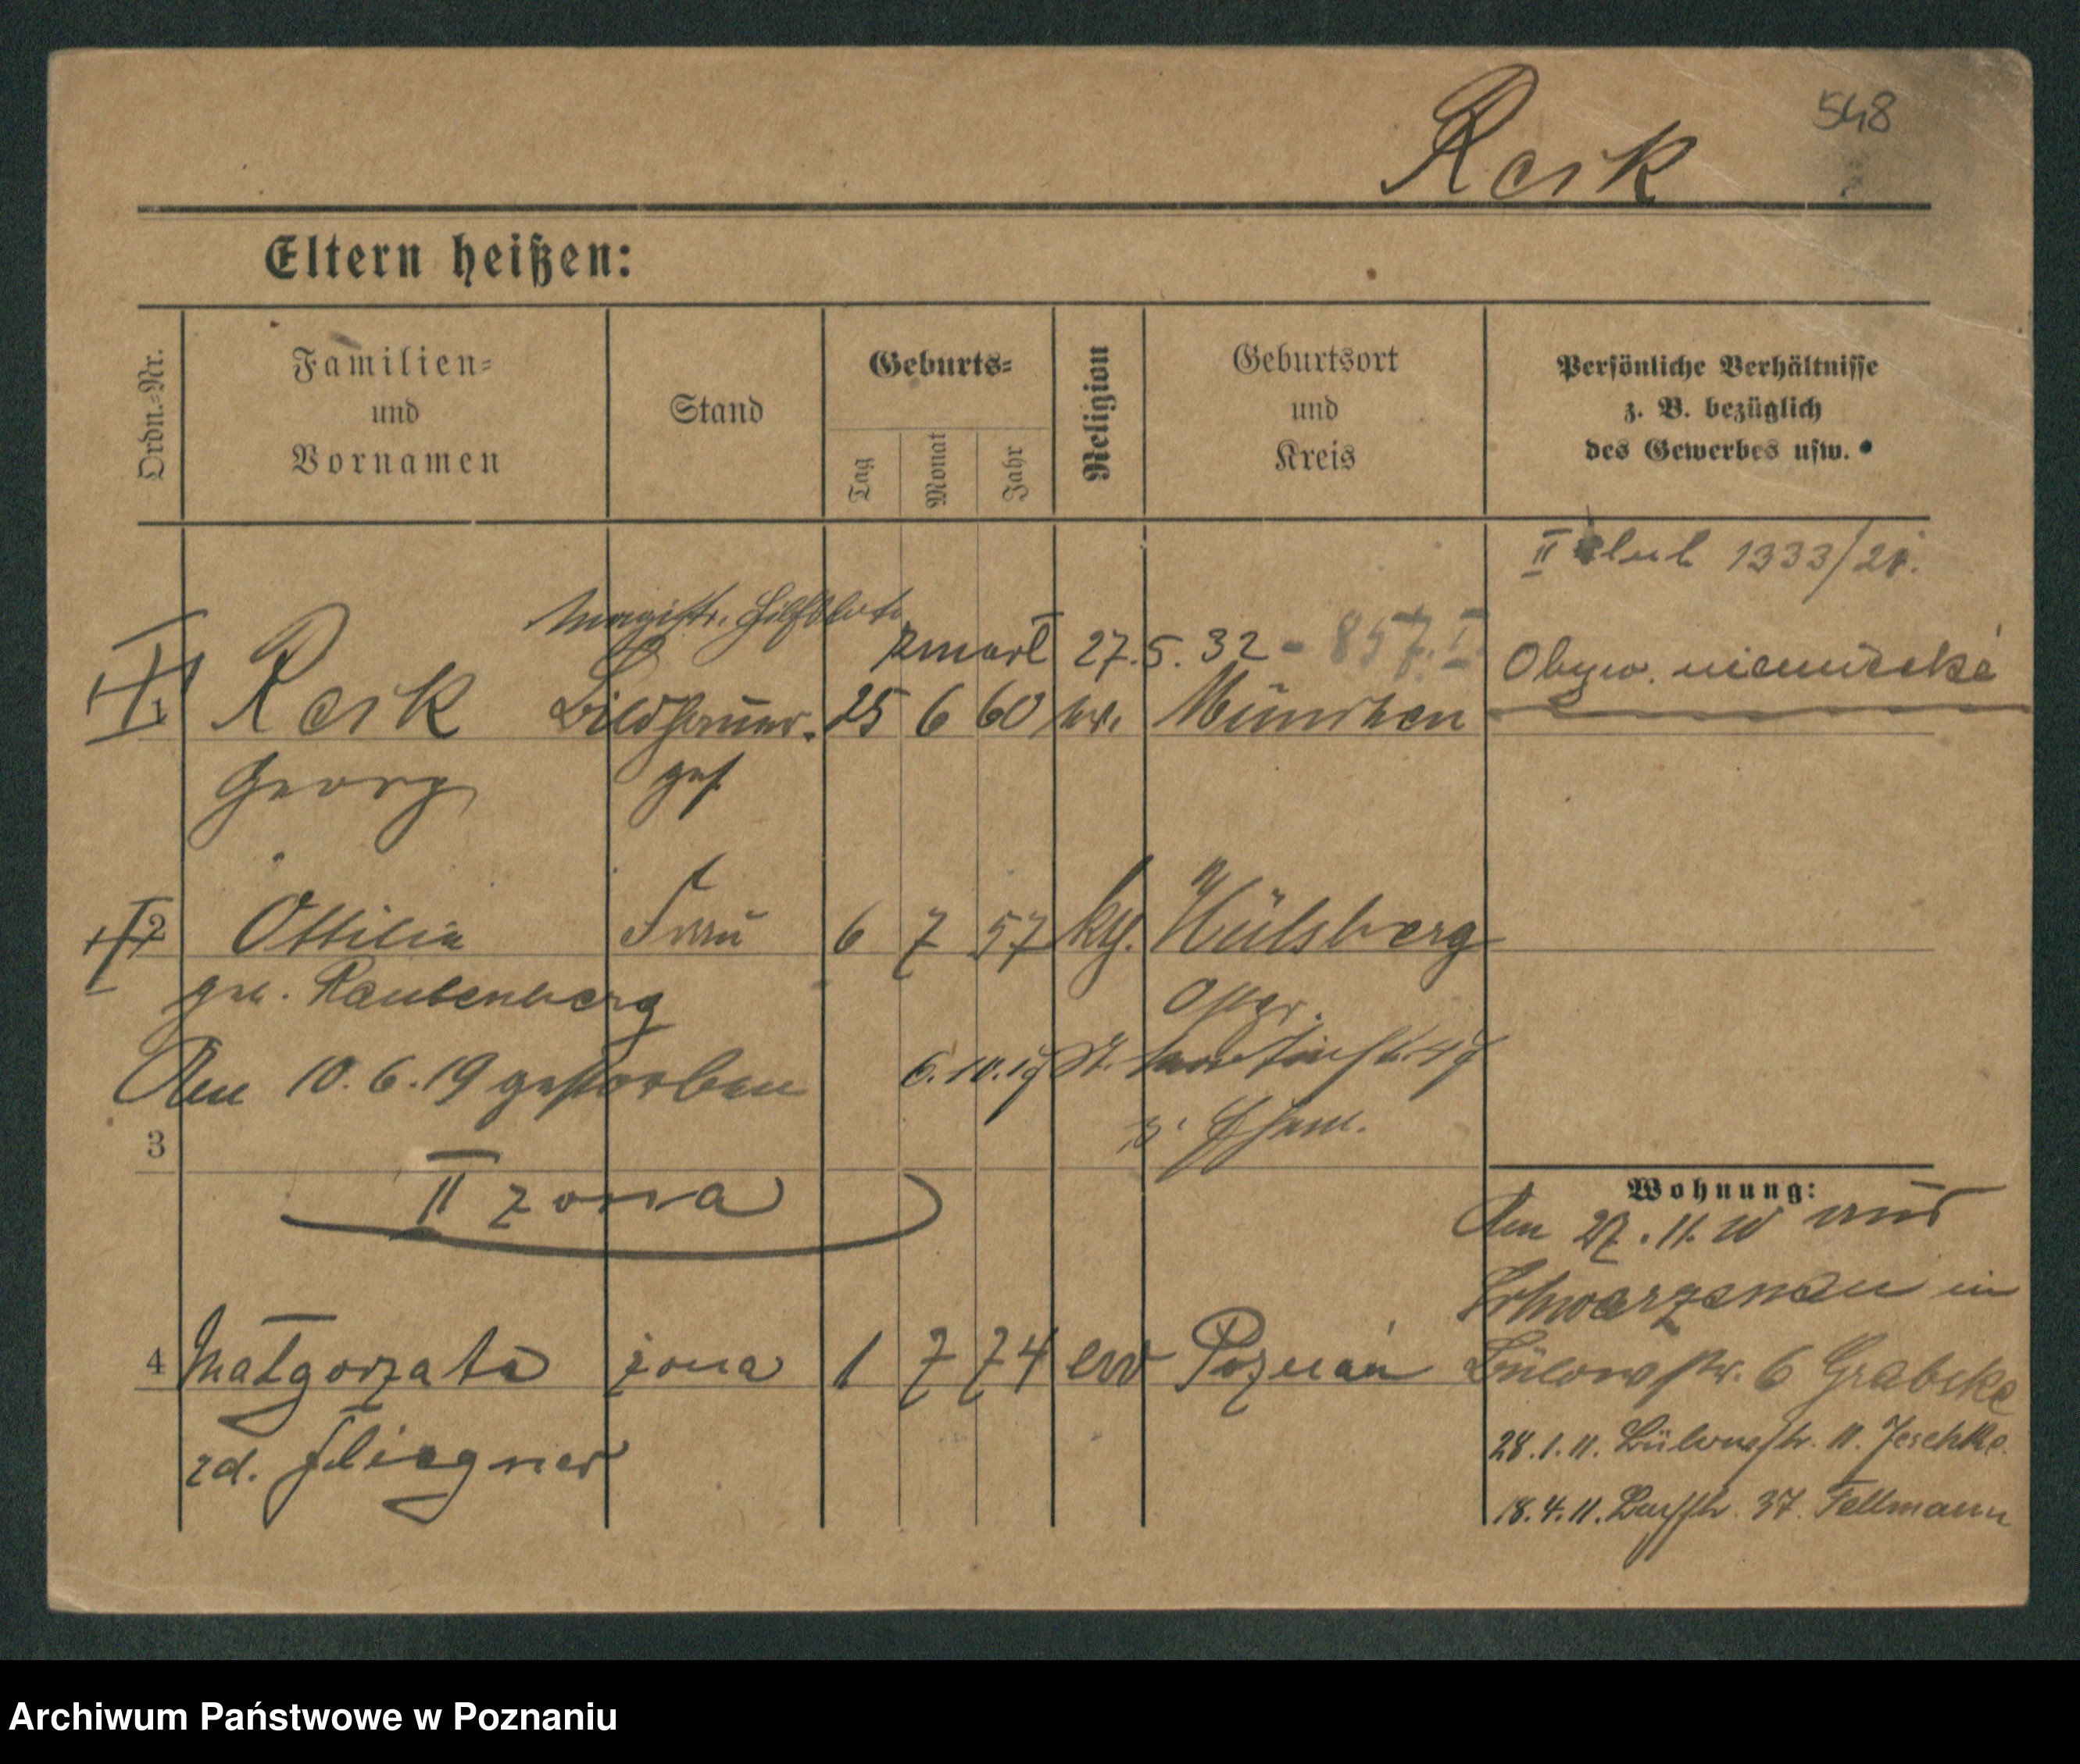 548
Resk
Eltern heißen:
Ordn.-Nr.
Familien-
und
Vornamen
Stand
Geburts-
Tag
Monat
Jahr
Religion
Geburtsort
und
Kreis
Persönliche Verhältnisse
z. B. bezüglich
des Gewerbes usw.
II ślub 1333/21.
Magistr. Hilfsbote
zmarł 27.5.32 - 857. I
Obyw. niemieckie
1 Resk Bildhauer- 25 6 60 München
Georg geh.
2 Ottilie Frau 6 7 57 Hülsberg
geb. Raubenberg
Ostpr.
Am 10.6.19 gestorben 6.10.19 St.
3
II żona
Wohnung:
Am 27.11.10 aus
Schwarzenau in
4 Małgorzata żona 1 7 74 ew Poznań
Bülowstr. 6 Grabske
zd. Fliegner
28.1.11. Bülowstr. 11. Jeschke
18.4.11. 37. Tellmann
Archiwum Państwowe w Poznaniu